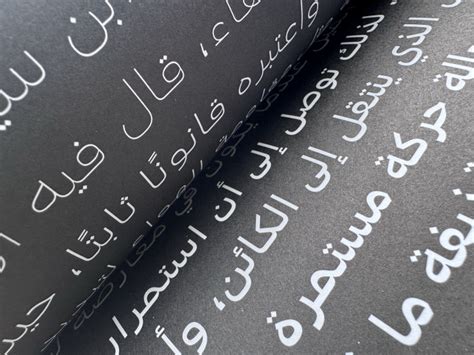 بن
قال فيه
واعتبره قانونًا ثابتًا،
عندما يكون في معارضة
لذلك توصل إلى أن استمرار
الذي ينتقل إلى الكائن،
حركة مستمرة
ما